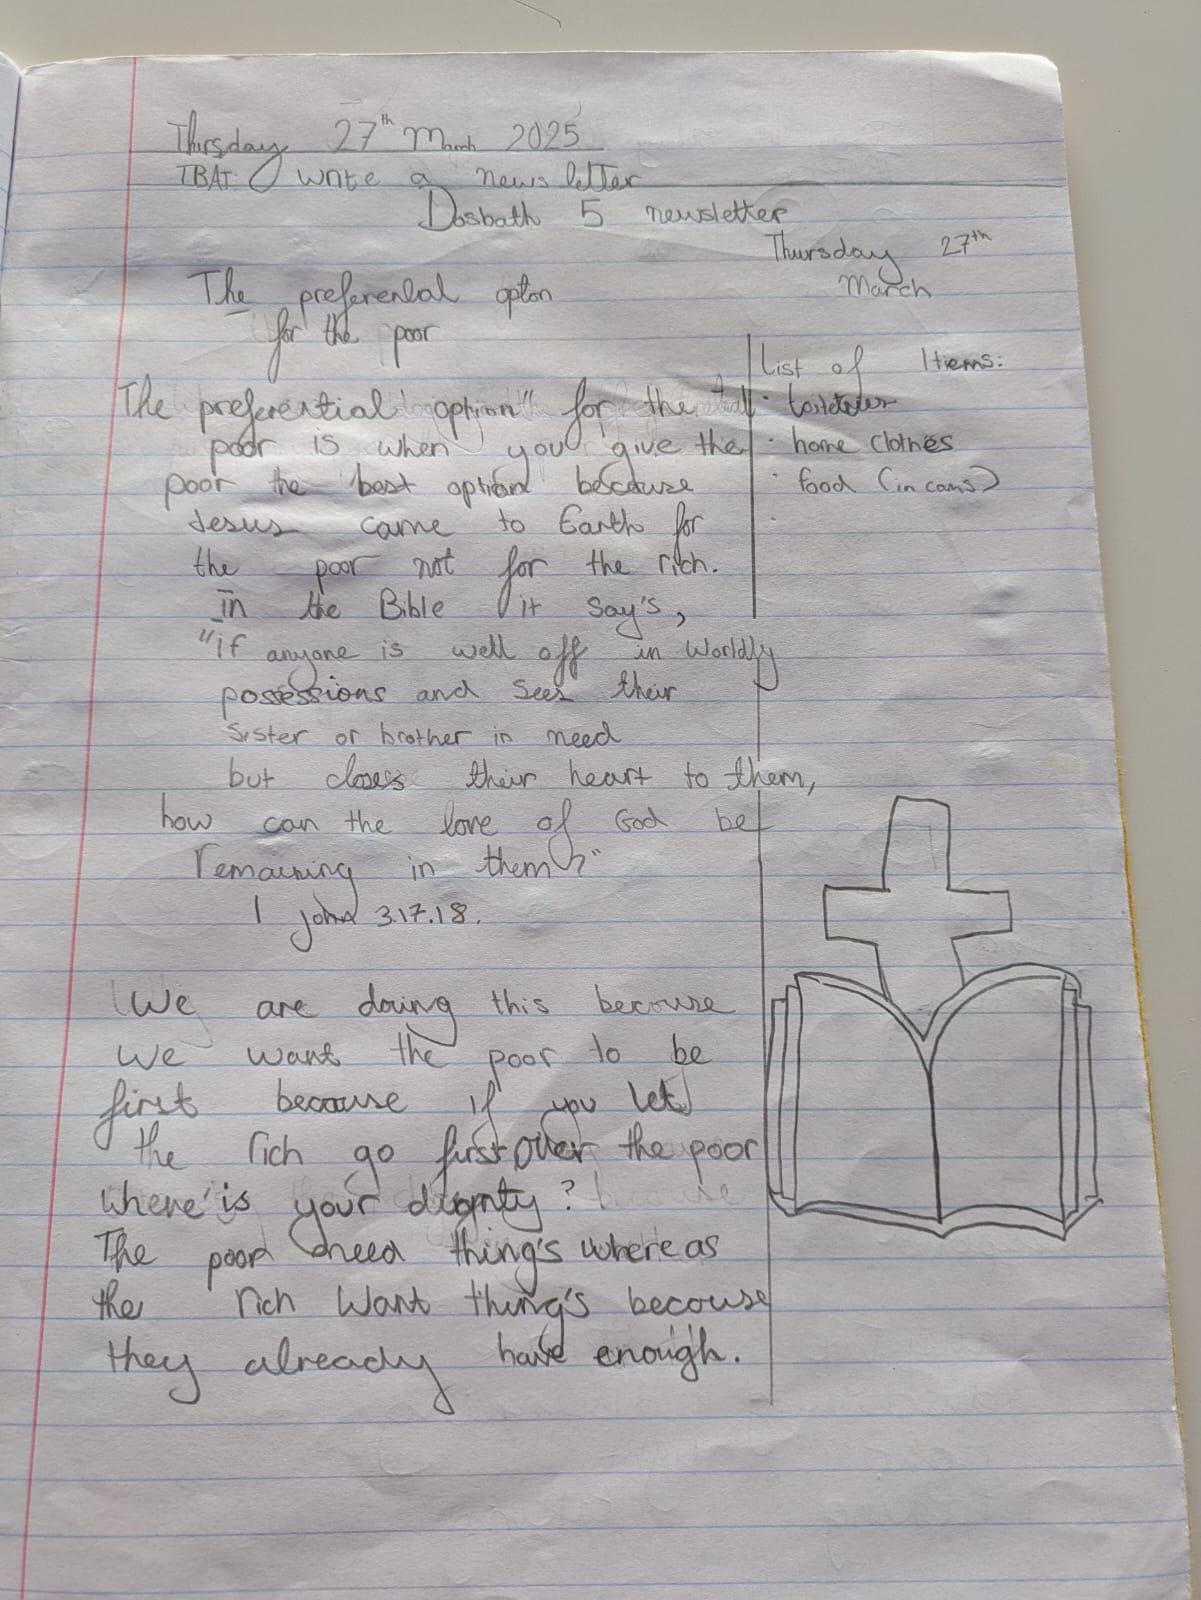 Thursday 27th March 2025
TBAT: write a news letter
Dosbath 5 newsletter
Thursday 27th
March
The preferential opton
for the poor
The preferential option" for the
poor is when you give the
poor the best option because
Jesus came to Earth for
the poor not for the rich.
in the Bible it say's,
"if anyone is well off in worldly
possessions and sees their
sister or brother in need
but closes their heart to them,
how can the love of God be
remaining in them?"
1 john 3.17.18.
We are doing this becouse
we want the poor to be
first becouse if you let
the rich go first over the poor
where is your dignty?
The poor need thing's where as
the rich want thing's becouse
they already have enough.
List of Itiems:
· home clothes
· food (in cans)
·